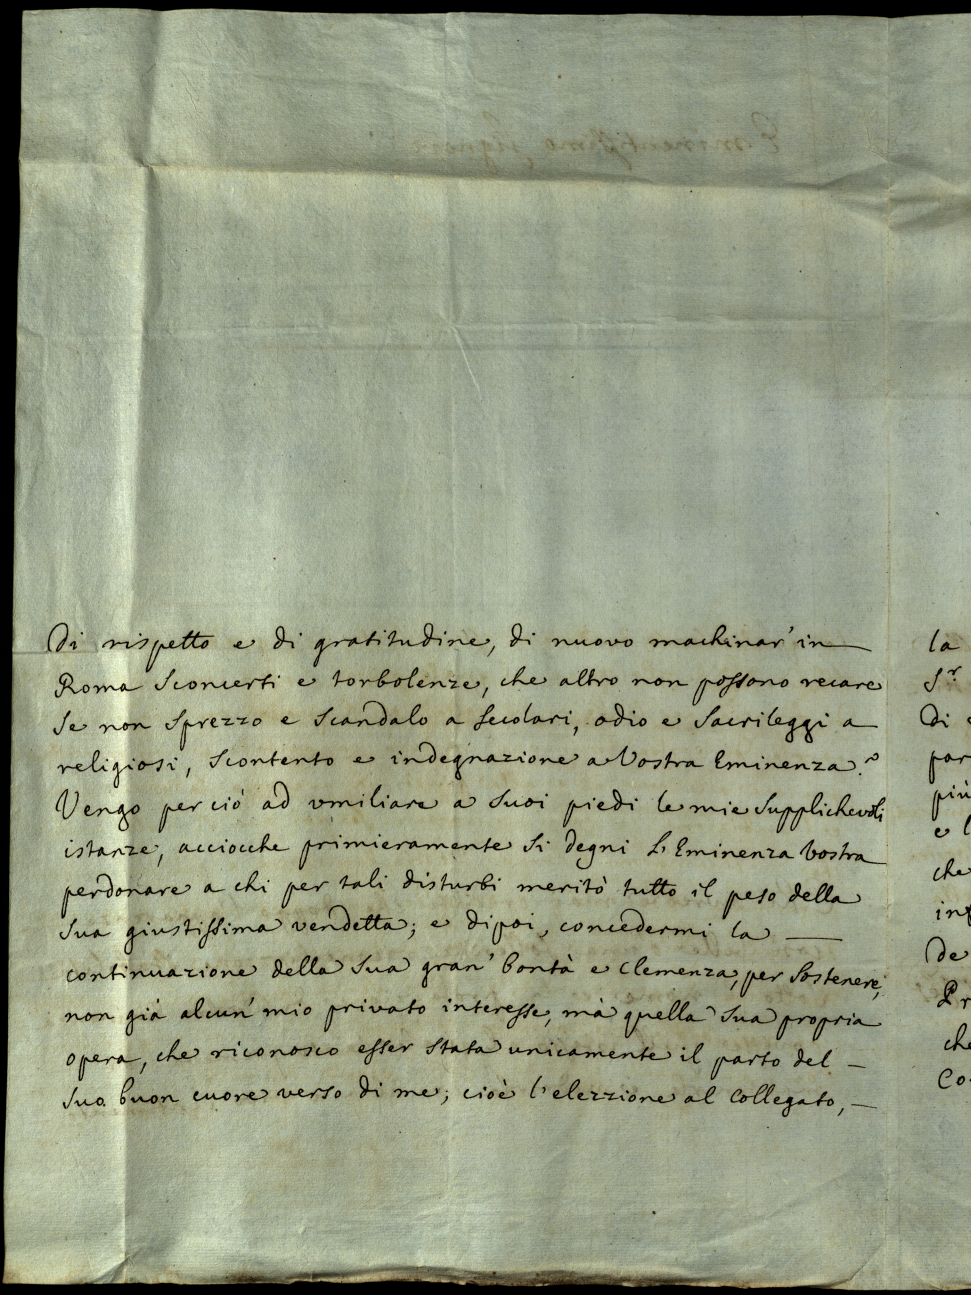 Di rispetto e di gratitudine, di nuovo machinar' in —
Roma sconcerti e torbolenze, che altro non possono recare
se non sprezzo e scandalo a secolari, odio e sacrileggi a —
religiosi, scontento e indegnazione a Vostra Eminenza.
Vengo perciò ad vmiliare a suoi piedi le mie supplichevoli
istanze, acciocche primieramente si degni L'Eminenza Vostra
perdonare a chi per tali disturbi meritò tutto il peso della
sua giustissima vendetta; e dipoi, concedermi la —
continuazione della sua gran' bontà e clemenza, per sostenere,
non già alcun' mio privato interesse, mà quella sua propria
opera, che riconosco esser stata unicamente il parto del —
suo buon cuore verso di me; cioè l'elezzione al Collegato, —
la
Sr
Di
par
più
e l
che
De
Pr
che
Co